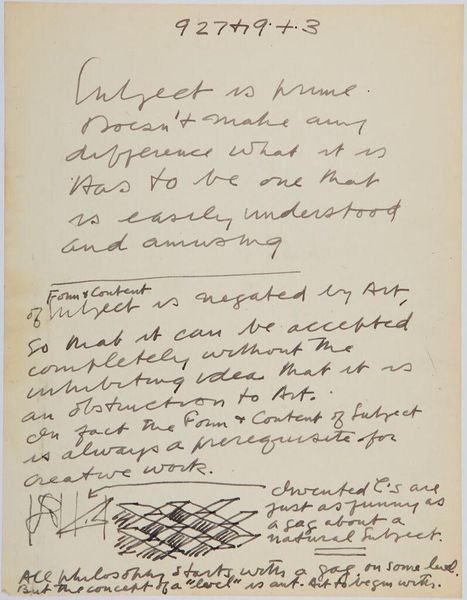 927+9.+.3
Subject is prime.
Doesn't make any
difference what it is
Has to be one that
is easily understood
and amusing
Form & Content
of Subject is negated by Art,
so that it can be accepted
completely without the
inhibiting idea that it is
an obstruction to Art.
In fact the Form & Content of Subject
is always a prerequisite for
creative work.
Invented C's are
just as funny as
a gag about a
natural Subject.
All philosophy starts with a gag on some level.
But the concept of a "level" is art. Art to begin with.